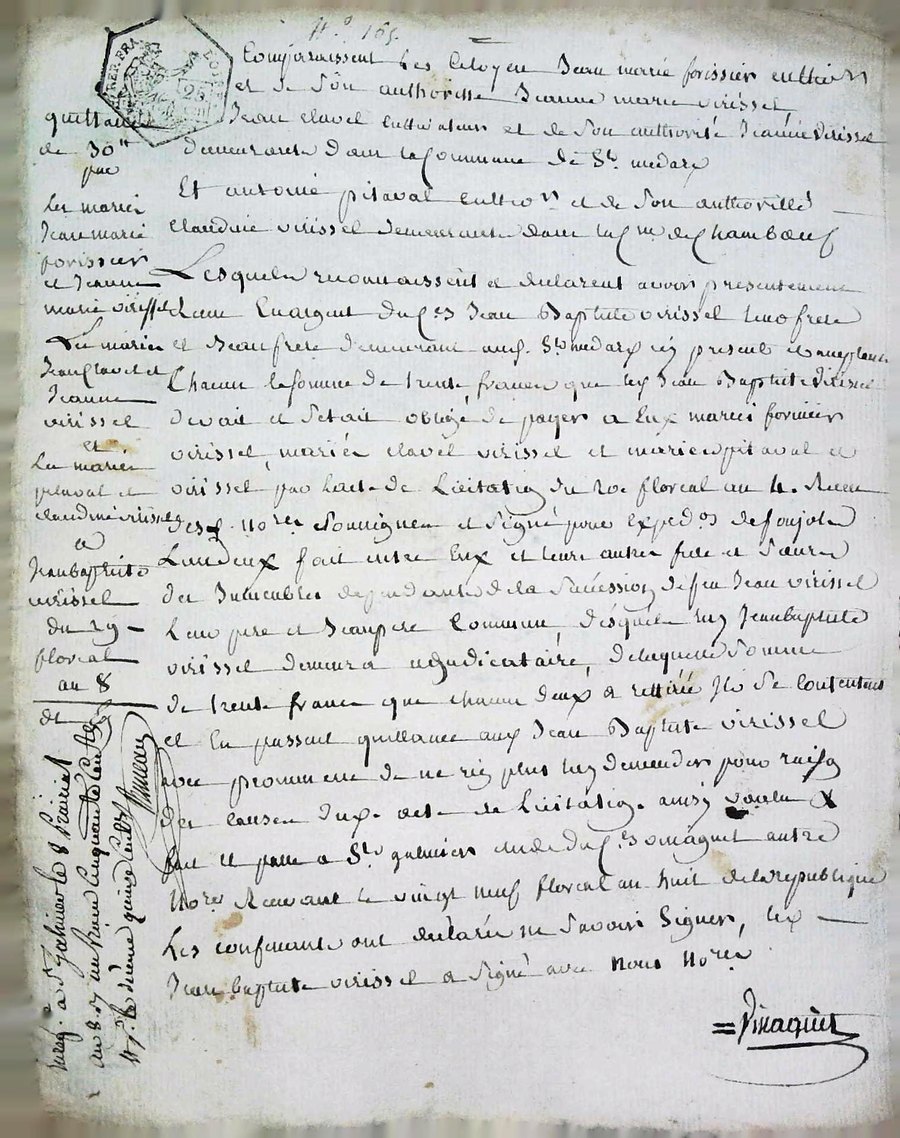 N.° 165
Comparaissent les Citoyen Jean marie forissier cultivr
et de son authorisse Jeanne marie virissel
Jean clavel cultivateur et de son authorité Jeanne virissel
demeurants dans la Commune de St medard
Et antoine pitaval cultivr et de son authorité
claudine virissel demeurants dans la Cne de Chambœuf
Lesquels reconnaissent et declarent avoir presentement
Recu en argent du Cen Jean Baptiste virissel leur frere
et Beaufrere demeurant aud. St medard icy present et acceptant
Chacun la somme de trente francs que led Jean Baptiste virissel
devait et s'etait obligé de payer a Eux mariés forissier
virissel, mariés clavel virissel et mariés pitaval et
virissel par l'acte de Licitation du 20e floreal an 4. Recu
des Nores soussignes et signé pour expedon
fait entre Eux et leurs autres frere et sœurs
des Immeubles dependants de la succession de feu Jean virissel
leur pere et Beaupere commun desquels led Jean baptiste
virissel demeura adjudicataire, de laquelle somme
de trente francs que chacun deux a rettirée Ils se contentent
et en passent quittance aud Jean Baptiste virissel
avec promesse de ne rien plus luy demander pour raison
et causes dud. acte de Licitation. ainsy voulu
fait et passé a St galmier
Nores Recevant le vingt neuf floreal an huit de la republique
Les confessants ont declaré ne savoir signer, led
Jean baptiste virissel a signé avec nous Nores
quittance
de 30tt
par
les mariés
Jean marie
forissier
et Jeanne
marie virissel
Les mariés
Jean Clavel et
Jeanne
virissel
et
Les mariés
pitaval et
claudine virissel
a
Jean baptiste
virissel
du 29
floreal
an 8
Enreg. à St Galmier le 8 Prairial
an 8.